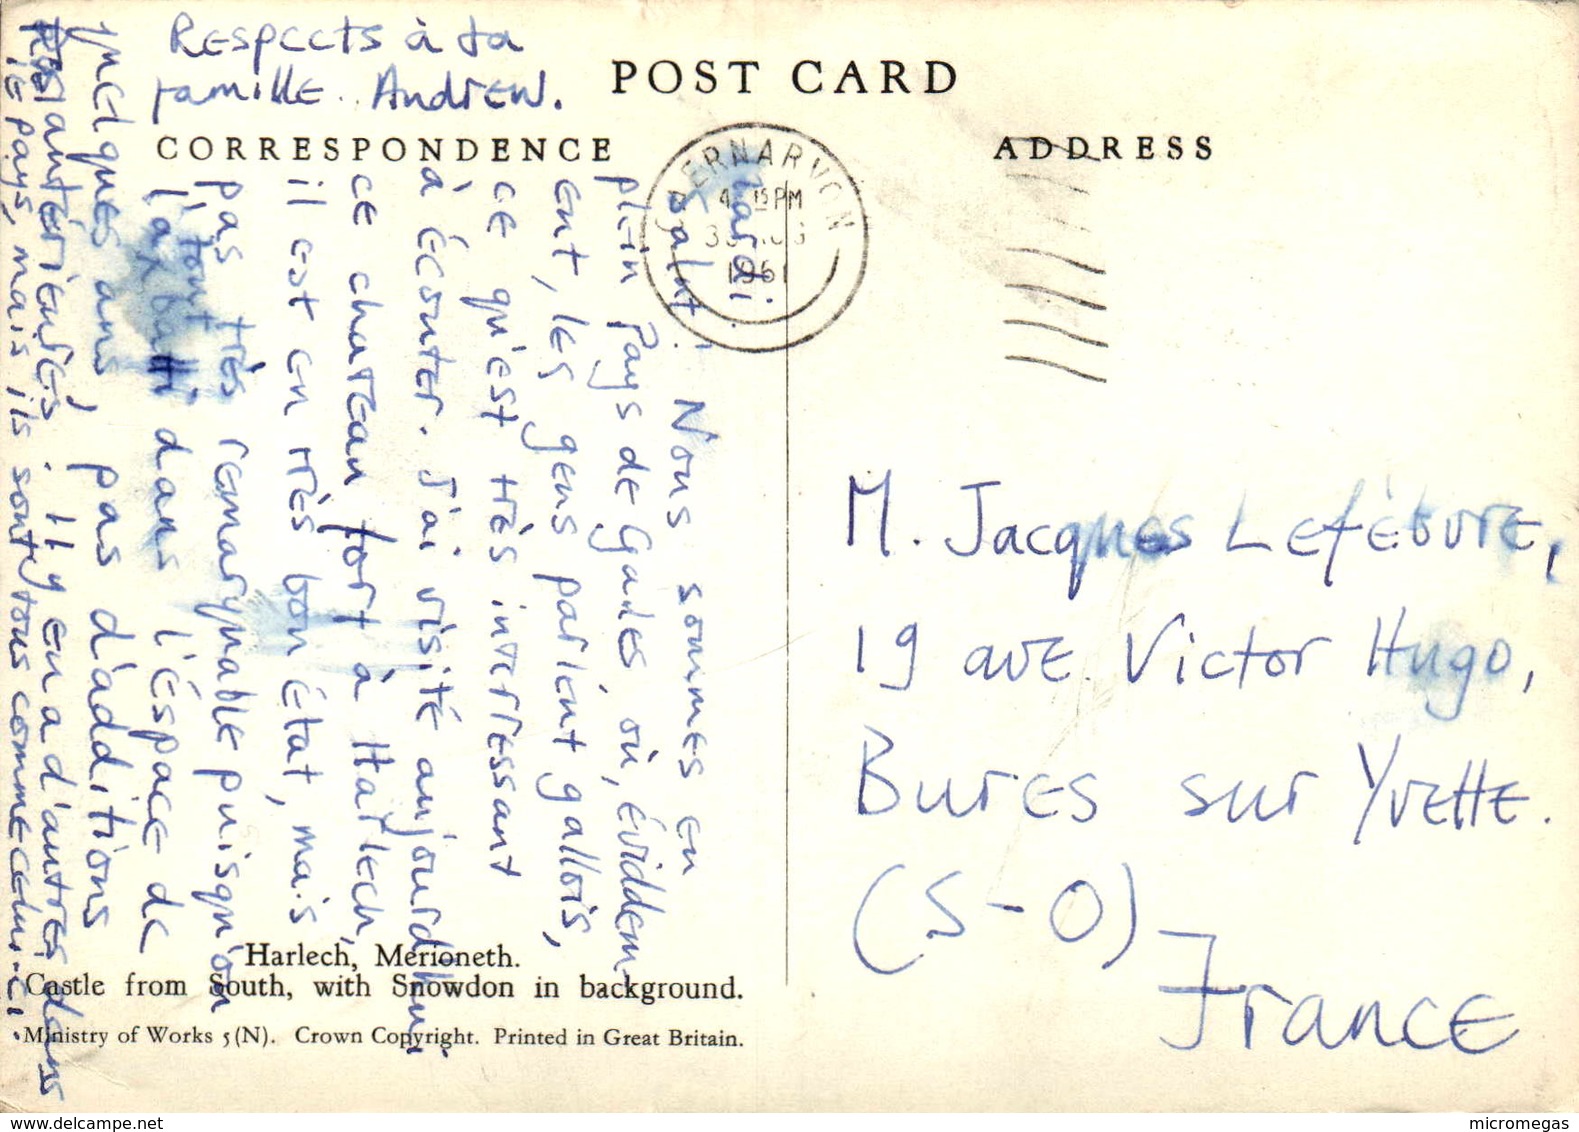 Respects à ta
famille. Andrew.
POST CARD
CORRESPONDENCE
ADDRESS
4 15 PM
1961
Mardi.
Salut! Nous sommes en
plein Pays de Galles, où, éviddem-
ent, les gens parlent gallois,
ce qu'est très interressant
à écouter. J'ai visité aujourd'hui
ce chateau fort à Harlech,
il est en très bon état, mais
pas très remarquable puisqu'on
l'tout
l'a batti dans l'éspace de
quelques ans, pas d'additions
antérieures. Il y en a d'autres dans
le pays, mais ils sont tous comme celui-ci.
M. Jacques Lefèbvre,
19 ave. Victor Hugo,
Bures sur Yvette.
(S-O)
France
Harlech, Merioneth.
Castle from South, with Snowdon in background.
Ministry of Works 5 (N). Crown Copyright. Printed in Great Britain.
micromegas